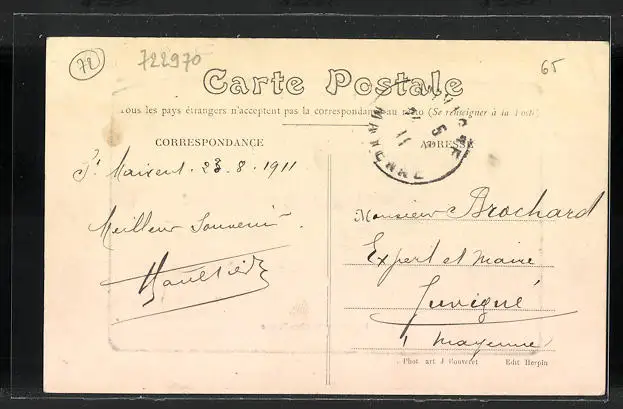 72
722970
65
Carte Postale
Tous les pays étrangers n'acceptent pas la correspondance au recto (Se renseigner à la Poste)
CORRESPONDANCE
ADRESSE
MAYENNE
St Maixent. 23.8.1911
Meilleur Souvenir
Monsieur Brochard
Expert et Maire
Juvigné
Mayenne
Phot art J Bouveret Edit Herpin